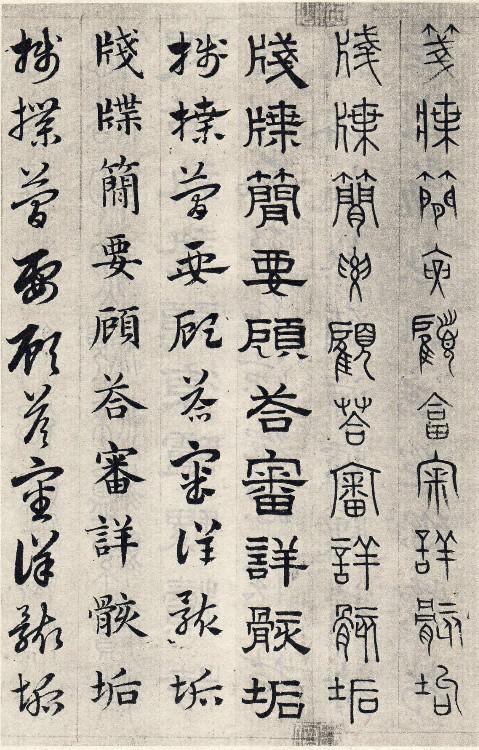 箋牒簡要顧答審詳骸垢
牋牒簡要顧荅審詳骸垢
牋牒簡要顧荅審詳骸垢
牋牒簡要顧荅審詳骸垢
牋牒簡要顧荅審詳骸垢
牋牒簡要顧荅審詳骸垢